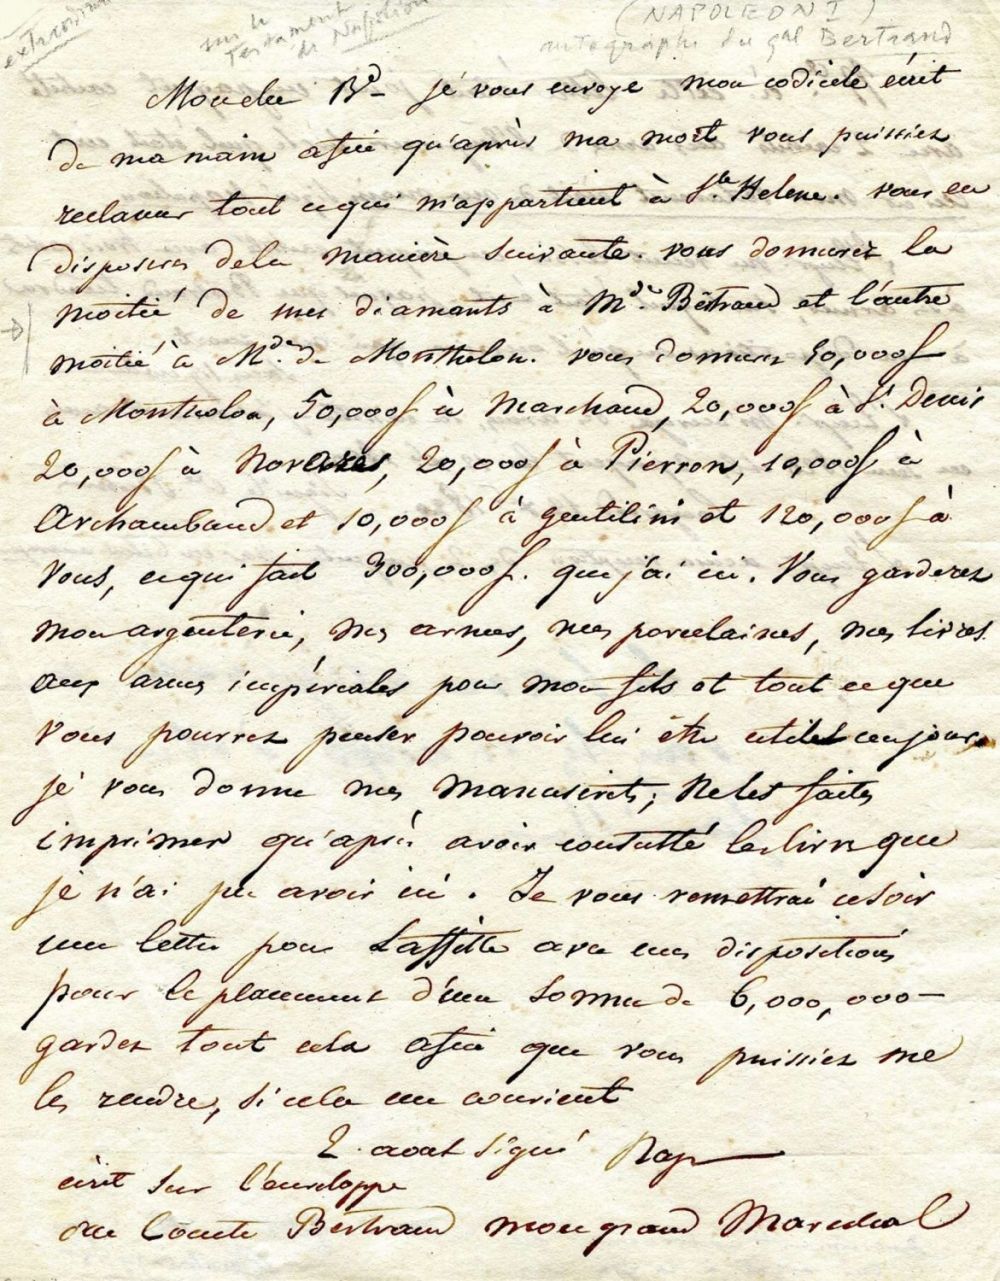 extraordinaire
sur le
testament
de Napoléon
(NAPOLEON I)
autographe du gal Bertrand
Mon cher Bd - je vous envoye mon codicile écrit
de ma main afin qu'après ma mort vous puissiez
reclamer tout ce qui m'appartient à Ste Helene. vous en
disposerez de la manière suivante. vous donnerez la
moitié de mes diamants à Mde Bertrand et l'autre
moitié à Mde de Montholon. vous donnerez 50,000f
à Montholon, 50,000f à Marchand, 20,000f à St Denis
20,000f à Novarès, 20,000f à Pierron, 10,000f à
Archambaud et 10,000f à gentilini et 120,000f à
vous, ce qui fait 300,000f. que j'ai ici. Vous garderez
mon argenterie, mes armes, mes porcelaines, mes livres
aux armes impériales pour mon fils et tout ce que
vous pourrez penser pouvoir lui être utile un jour.
je vous donne mes manuscrits; Ne les faites
imprimer qu'après avoir consulté les livres que
je n'ai pu avoir ici. Je vous remettrai ce soir
une lettre pour Laffitte avec mes dispositions
pour le placement d'une somme de 6,000,000 -
gardez tout cela afin que vous puissiez me
les rendre, si cela me convient
2. aoat signé Nap
écrit sur l'enveloppe
au Comte Bertrand mon grand Marechal